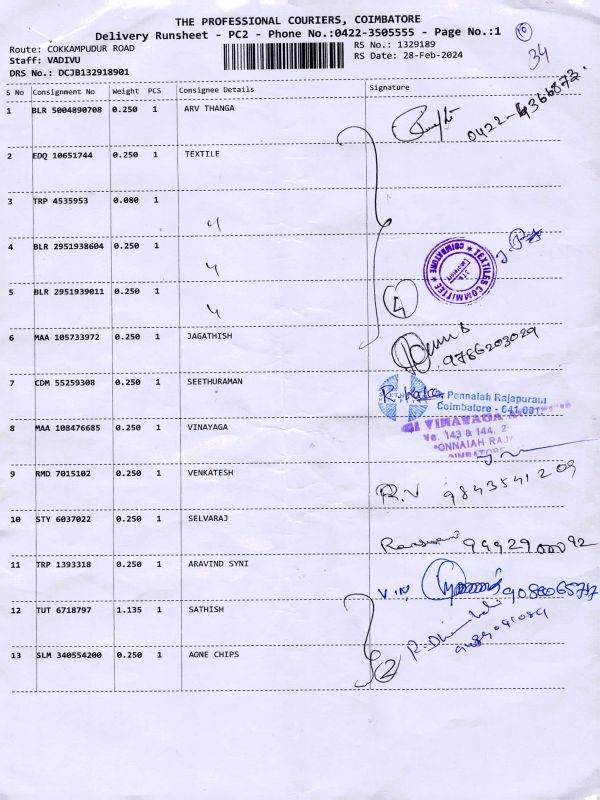 THE PROFESSIONAL COURIERS, COIMBATORE
Delivery Runsheet - PC2 - Phone No.:0422-3505555 - Page No.:1
10
34
Route: COKKAMPUDUR ROAD
RS No.: 1329189
Staff: VADIVU
RS Date: 28-Feb-2024
DRS No.: DCJB132918901
S No Consignment No Weight PCS Consignee Details Signature
1 BLR 5004890708 0.250 1 ARV THANGA
2 EDQ 10651744 0.250 1 TEXTILE
3 TRP 4535953 0.080 1
4 BLR 2951938604 0.250 1
TEXTILES COMMITTEE
COIMBATORE
5 BLR 2951939011 0.250 1
4
6 MAA 105733972 0.250 1 JAGATHISH 9786203029
7 CDM 55259308 0.250 1 SEETHURAMAN
Ponnaiah Rajapuram
Coimbatore - 641 001
8 MAA 108476685 0.250 1 VINAYAGA
VINAYAGA
No. 143 & 144, 2
PONNAIAH RAJA
9 RMD 7015102 0.250 1 VENKATESH R.V 9843541209
10 STY 6037022 0.250 1 SELVARAJ
11 TRP 1393318 0.250 1 ARAVIND SYNI V.N
12 TUT 6718797 1.135 1 SATHISH
13 SLM 340554200 0.250 1 AONE CHIPS
2